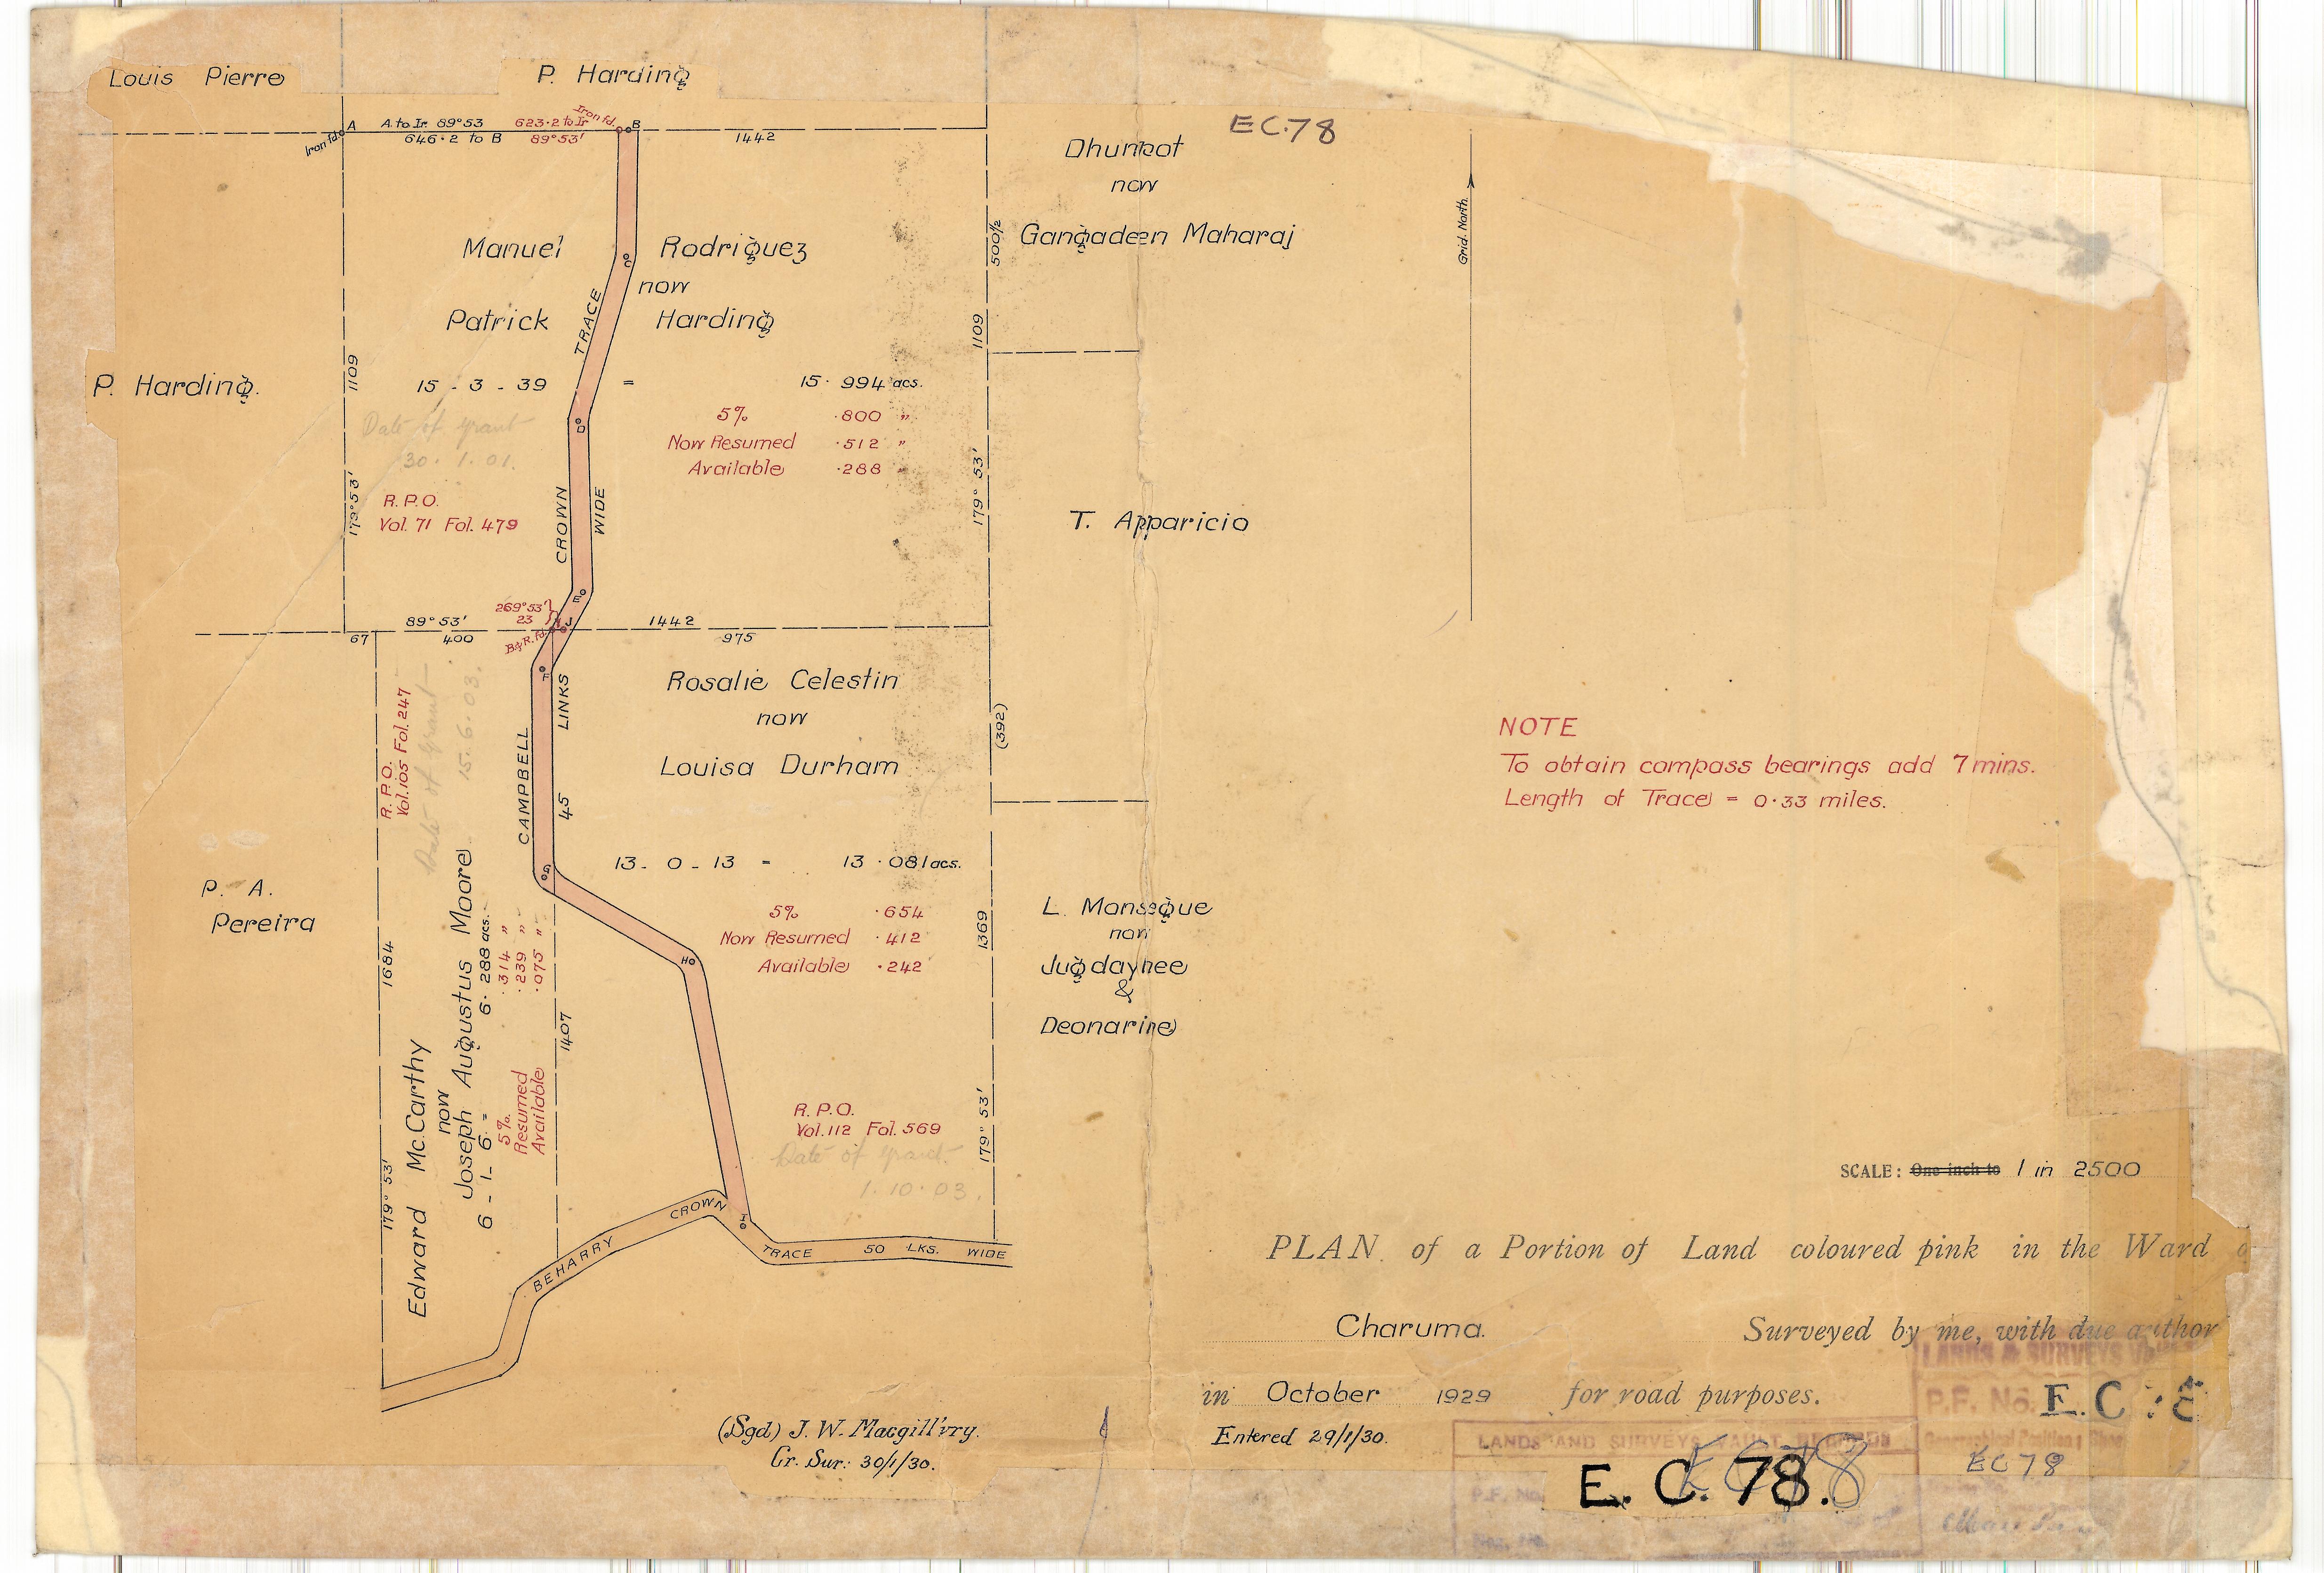 Louis Pierre
P. Harding
EC.78
A
A to Ir. 89°53
623.2 to Ir
Iron fd.
B
Iron fd.
646.2 to B
89°53'
1442
Dhunpot
now
Gangadeen Maharaj
Grid. North.
500½
Manuel Rodriguez
now
Patrick Harding
C
TRACE
P. Harding.
1109
1109
15 - 3 - 39 = 15.994 acs.
5% .800 "
Now Resumed .512 "
Available .288 "
Date of grant
30.1.01.
D
179°53'
179° 53'
R.P.O.
Vol. 71 Fol. 479
CROWN
WIDE
T. Apparicio
E
269°53'
23
J
B&R. fd.
89°53'
1442
67
400
975
F
Rosalie Celestin
now
Louisa Durham
(392)
LINKS
45
CAMPBELL
R.P.O.
Vol. 105 Fol. 247
Date of grant
15.6.03.
NOTE
To obtain compass bearings add 7 mins.
Length of Trace = 0.33 miles.
13 - 0 - 13 = 13.081 acs.
G
5% .654
Now Resumed .412
Available .242
P. A.
Pereira
1684
1407
1369
H
L. Monseque
now
Jugdayhee
&
Deonarine
Edward Mc.Carthy
now
Joseph Augustus Moore
6 - 1 - 6 = 6.288 acs.
5% .314 "
Resumed .239 "
Available .075 "
179° 53'
179° 53'
R.P.O.
Vol. 112 Fol. 569
Date of grant.
1.10.03.
I
BEHARRY CROWN TRACE 50 LKS. WIDE
SCALE: One inch to 1 in 2500
PLAN of a Portion of Land coloured pink in the Ward o
Charuma. Surveyed by me, with due author
in October 1929 for road purposes.
Entered 29/1/30.
(Sgd) J. W. Macgill'vry.
Cr. Sur: 30/1/30.
LANDS & SURVEYS
P.F. No. E.C.
EC 78
LANDS AND SURVEYS VAULT RECORDS
P.F. No.
E. C. 78.
EC 78